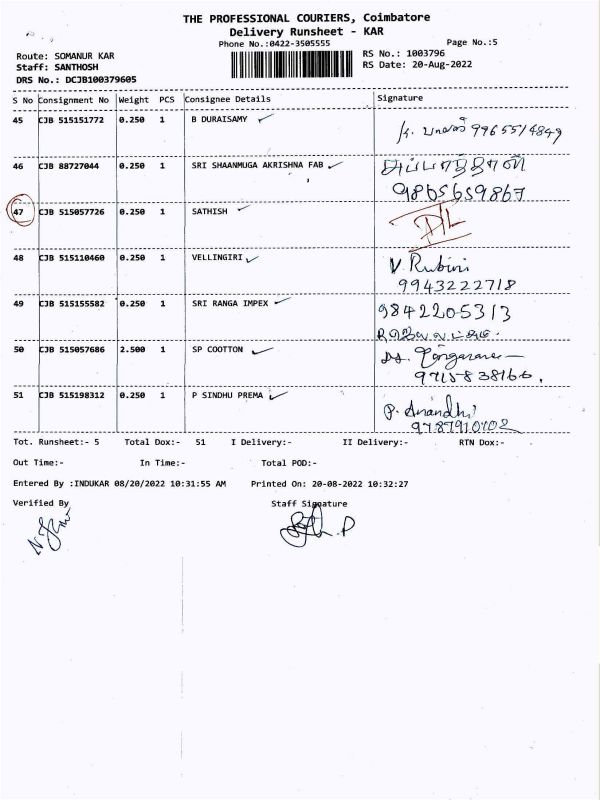 THE PROFESSIONAL COURIERS, Coimbatore
Delivery Runsheet - KAR
Phone No.:0422-3505555
Page No.:5
Route: SOMANUR KAR
RS No.: 1003796
Staff: SANTHOSH
RS Date: 20-Aug-2022
DRS No.: DCJB100379605
S No Consignment No Weight PCS Consignee Details Signature
45 CJB 515151772 0.250 1 B DURAISAMY 9965514849
46 CJB 88727044 0.250 1 SRI SHAANMUGA AKRISHNA FAB
9865659867
47 CJB 515057726 0.250 1 SATHISH
48 CJB 515110460 0.250 1 VELLINGIRI V. Rubini
9943222718
49 CJB 515155582 0.250 1 SRI RANGA IMPEX 9842205313
50 CJB 515057686 2.500 1 SP COOTTON
9715838166.
51 CJB 515198312 0.250 1 P SINDHU PREMA P. Anandhi
9787910102
Tot. Runsheet:- 5 Total Dox:- 51 I Delivery:- II Delivery:- RTN Dox:-
Out Time:- In Time:- Total POD:-
Entered By :INDUKAR 08/20/2022 10:31:55 AM Printed On: 20-08-2022 10:32:27
Verified By Staff Signature